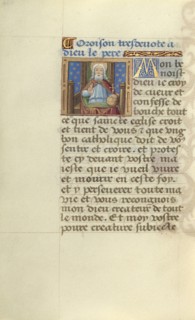 Oroison tresdevote a
dieu le pere
Mon be
noist
dieu ie croy
de cueur et
confesse de
bouche tout
ce que saincte eglise croit
et tient de vous / que ung
bon catholique doit de vo9
sentir et croire. et protes
te cy devant vostre ma
ieste que ie vueil vivre
et mourir en ceste foy.
et y perseverer toute ma
vie et vous recongnois
mon dieu createur de tout
le monde. Et moy vostre
povre creature subiecte